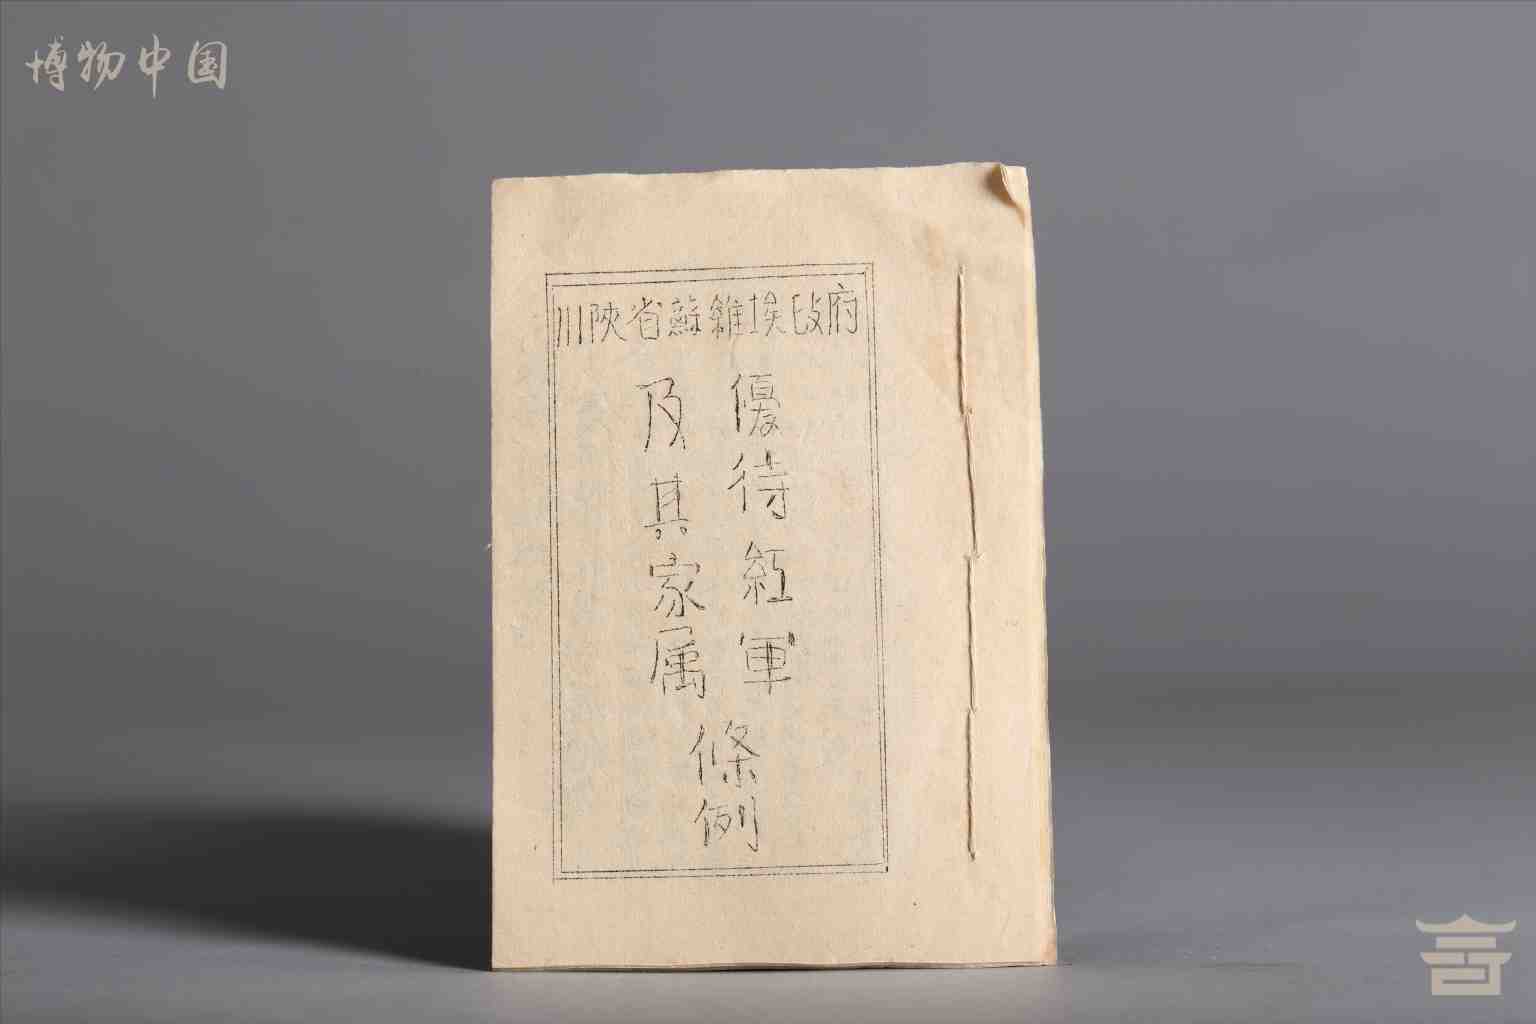 博物中国
川陝省蘇維埃政府
優待紅軍
及其家属
條例